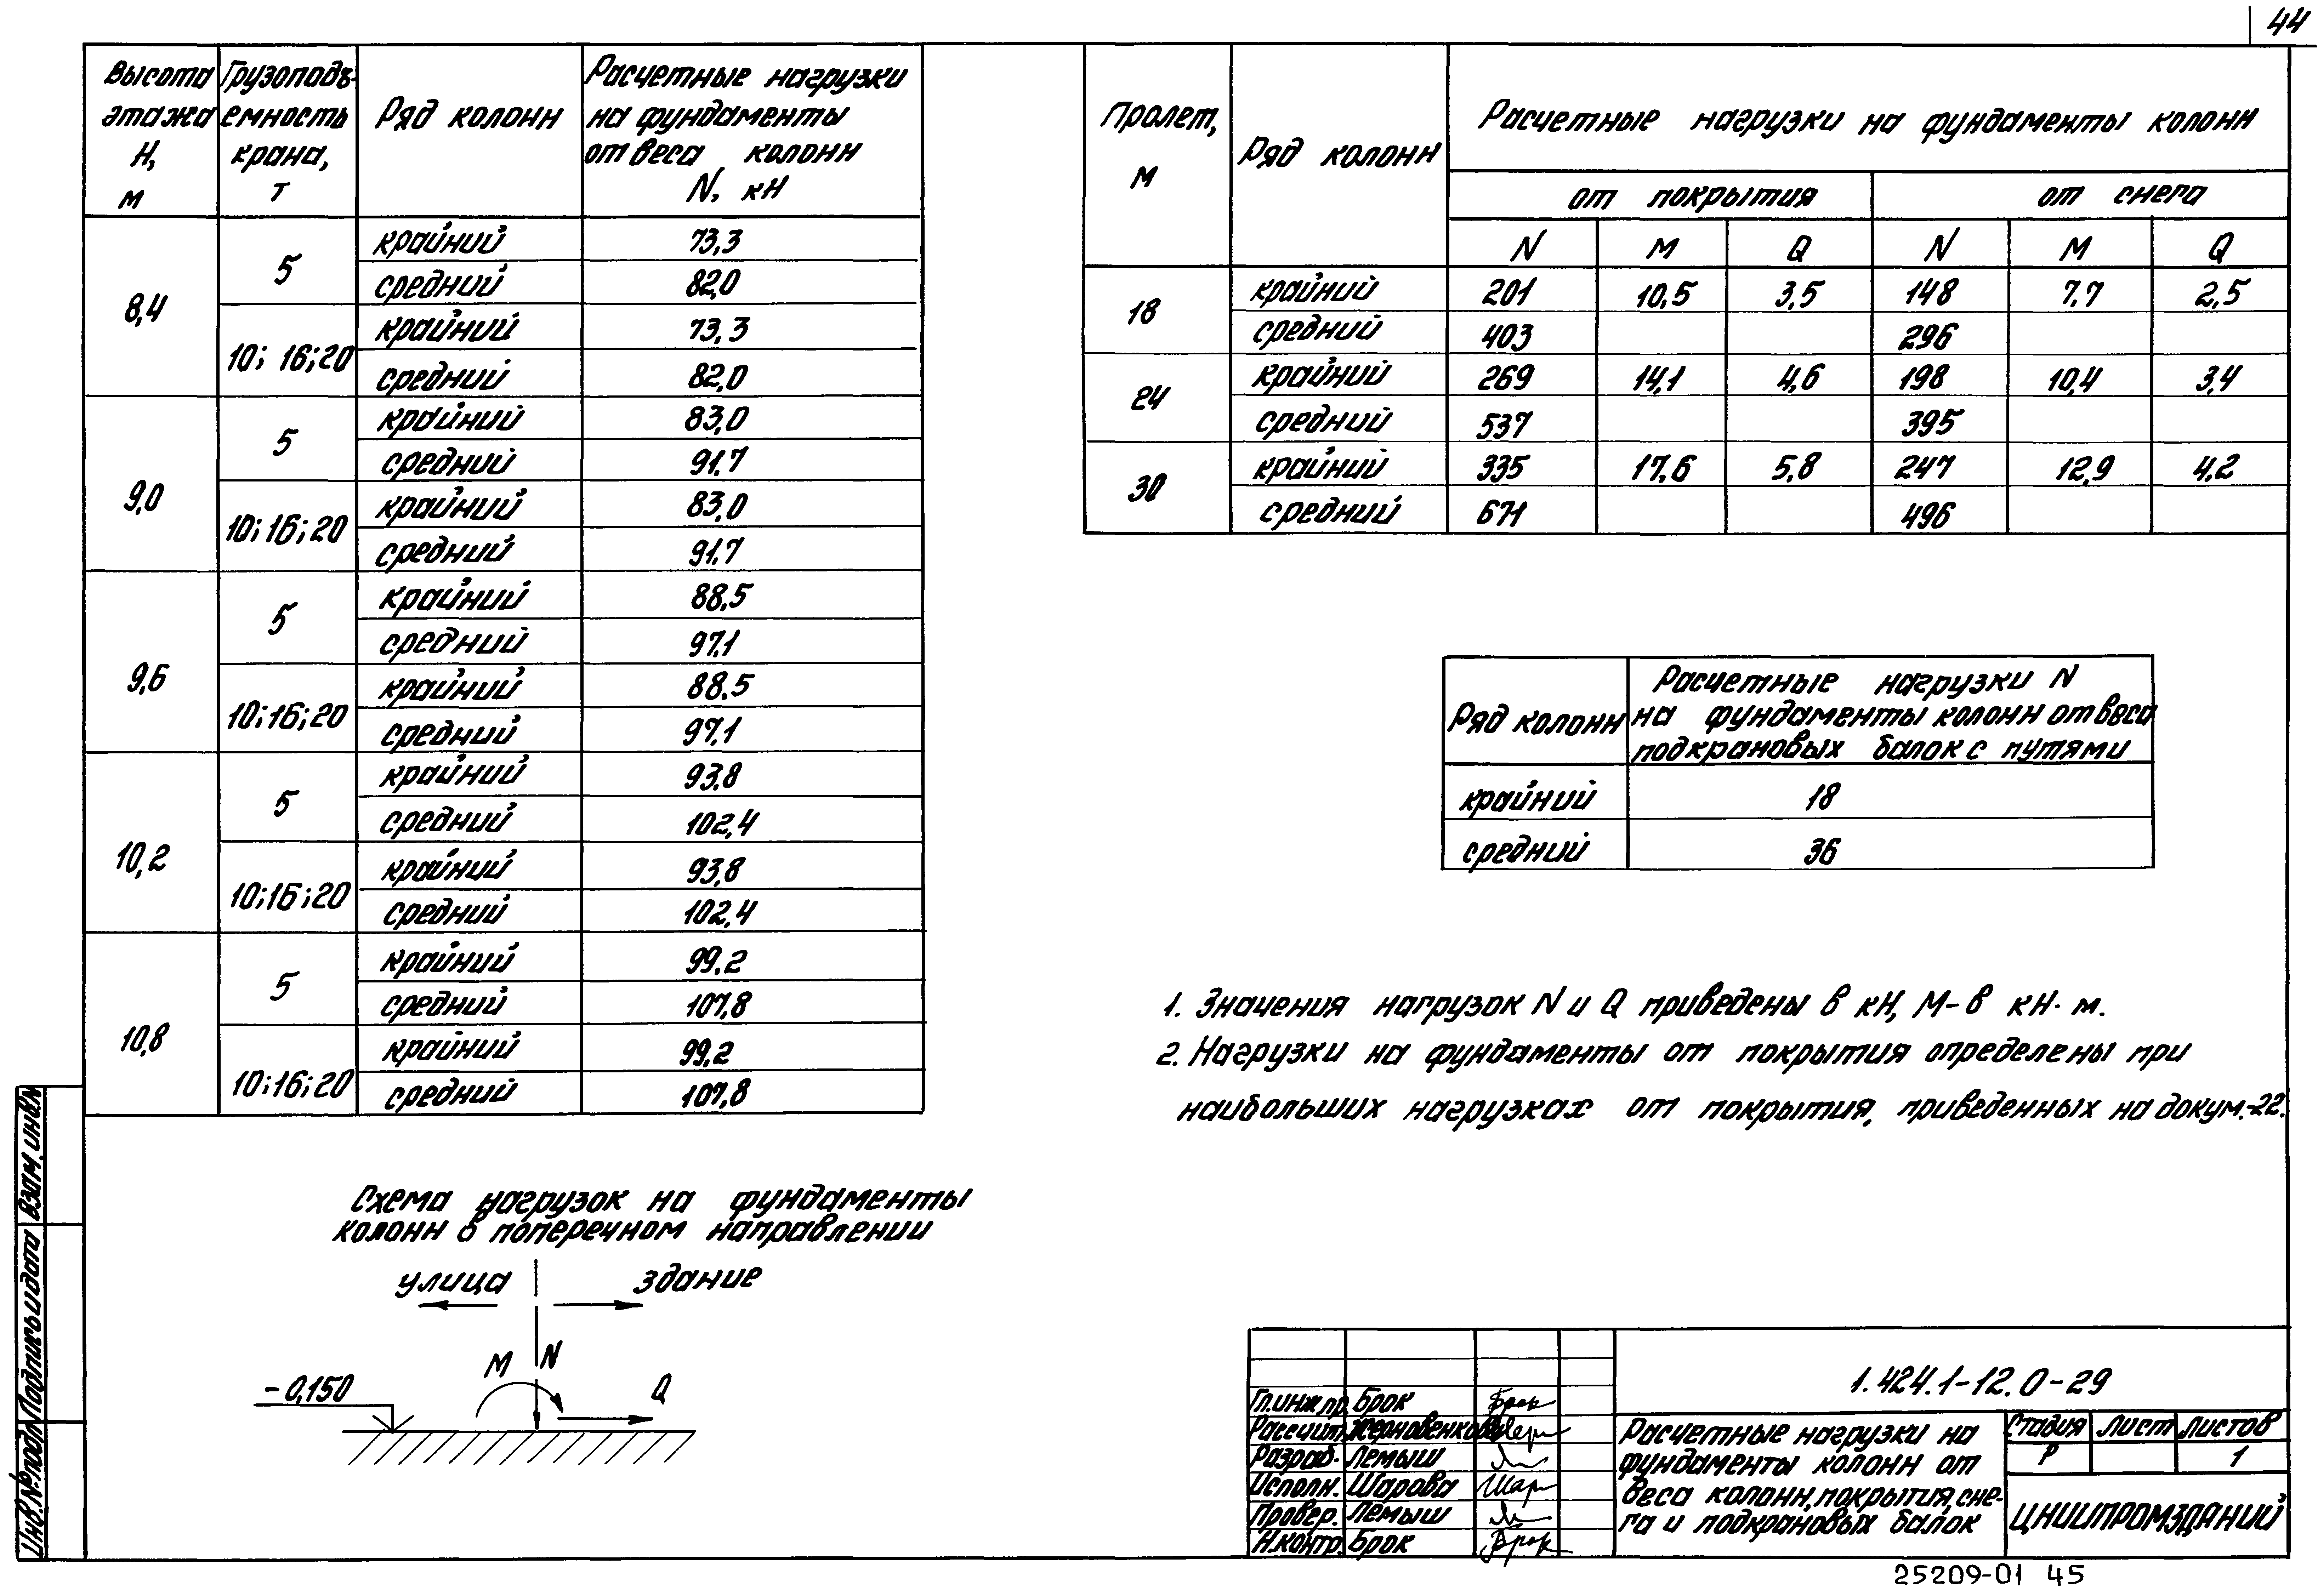 44
Высота этажа H, м | Грузоподъ-емность крана, т | Ряд колонн | Расчетные нагрузки на фундаменты от веса колонн N, кН
8,4 | 5 | крайний | 73,3
средний | 82,0
10; 16; 20 | крайний | 73,3
средний | 82,0
9,0 | 5 | крайний | 83,0
средний | 91,7
10; 16; 20 | крайний | 83,0
средний | 91,7
9,6 | 5 | крайний | 88,5
средний | 97,1
10; 16; 20 | крайний | 88,5
средний | 97,1
10,2 | 5 | крайний | 93,8
средний | 102,4
10; 16; 20 | крайний | 93,8
средний | 102,4
10,8 | 5 | крайний | 99,2
средний | 107,8
10; 16; 20 | крайний | 99,2
средний | 107,8
Пролет, м | Ряд колонн | Расчетные нагрузки на фундаменты колонн
от покрытия | от снега
N | M | Q | N | M | Q
18 | крайний | 201 | 10,5 | 3,5 | 148 | 7,7 | 2,5
средний | 403 | 296
24 | крайний | 269 | 14,1 | 4,6 | 198 | 10,4 | 3,4
средний | 537 | 395
30 | крайний | 335 | 17,6 | 5,8 | 247 | 12,9 | 4,2
средний | 671 | 496
Ряд колонн | Расчетные нагрузки N на фундаменты колонн от веса подкрановых балок с путями
крайний | 18
средний | 36
1. Значения нагрузок N и Q приведены в кН, M - в кН·м.
2. Нагрузки на фундаменты от покрытия определены при
наибольших нагрузках от покрытия, приведенных на докум.-22.
Схема нагрузок на фундаменты
колонн в поперечном направлении
улица здание
M N Q
-0,150
Взам. инв.N
Подпись и дата
Инв.№ подл.
Гл.инж.пр. Брок Брок
Рассчит. Жерновенкова
Разраб. Лемыш
Исполн. Шарова Шар
Провер. Лемыш
Н.контр. Брок Брок
1.424.1-12.0-29
Расчетные нагрузки на
фундаменты колонн от
веса колонн, покрытия, сне-
га и подкрановых балок
Стадия Лист Листов
Р 1
ЦНИИПРОМЗДАНИЙ
25209-01 45